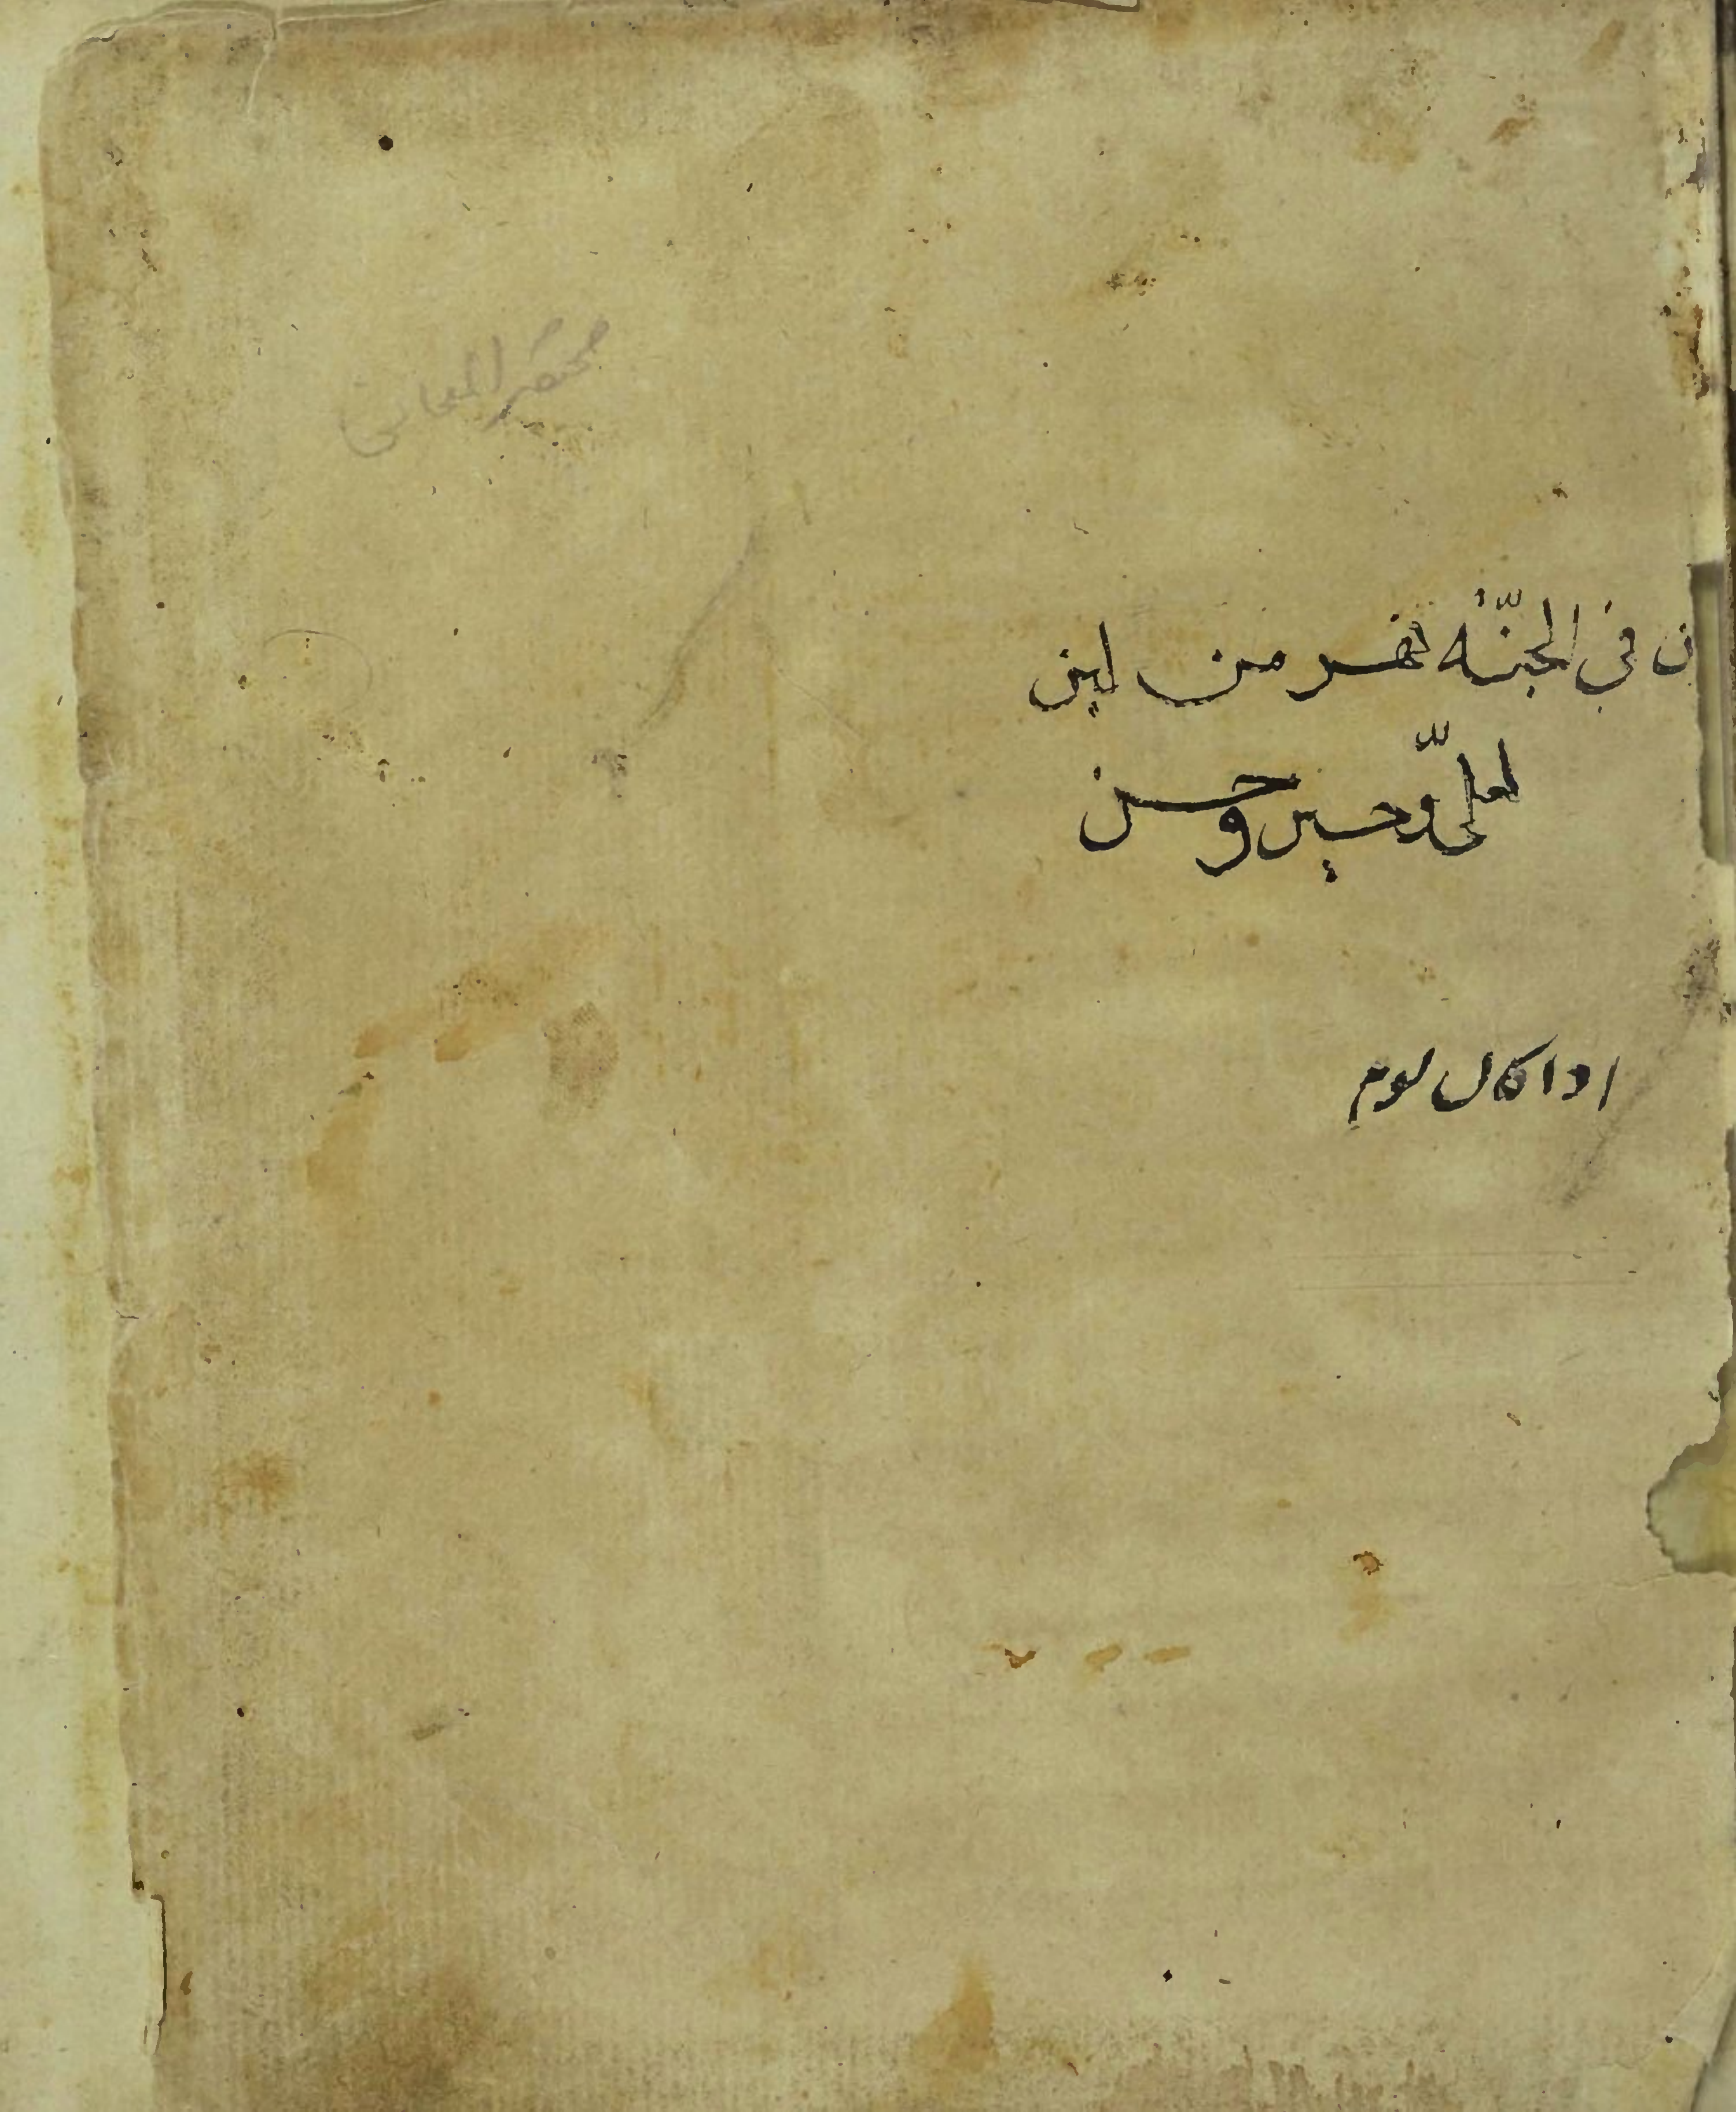 مختصر المعانى
ن في الجنّة نهر من لبن
لعلىّ وحسين وحسن
اذا كان يوم